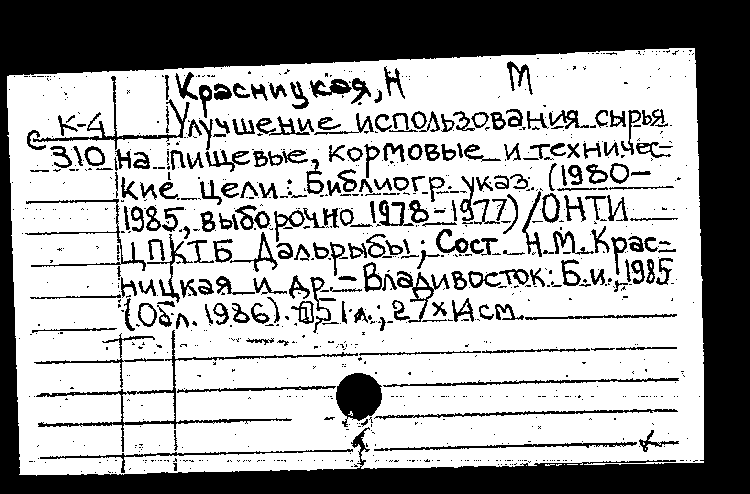 Красницкая, Н М
К-4 Улучшение использования сырья
С 310 на пищевые, кормовые и техничес-
кие цели: Библиогр. указ. (1980-
1985, выборочно 1978-1977) / ОНТИ
ЦПКТБ Дальрыбы; Сост. Н.М. Крас-
ницкая и др. - Владивосток: Б.и., 1985
(Обл. 1986). 51 л.; 27×14 см.